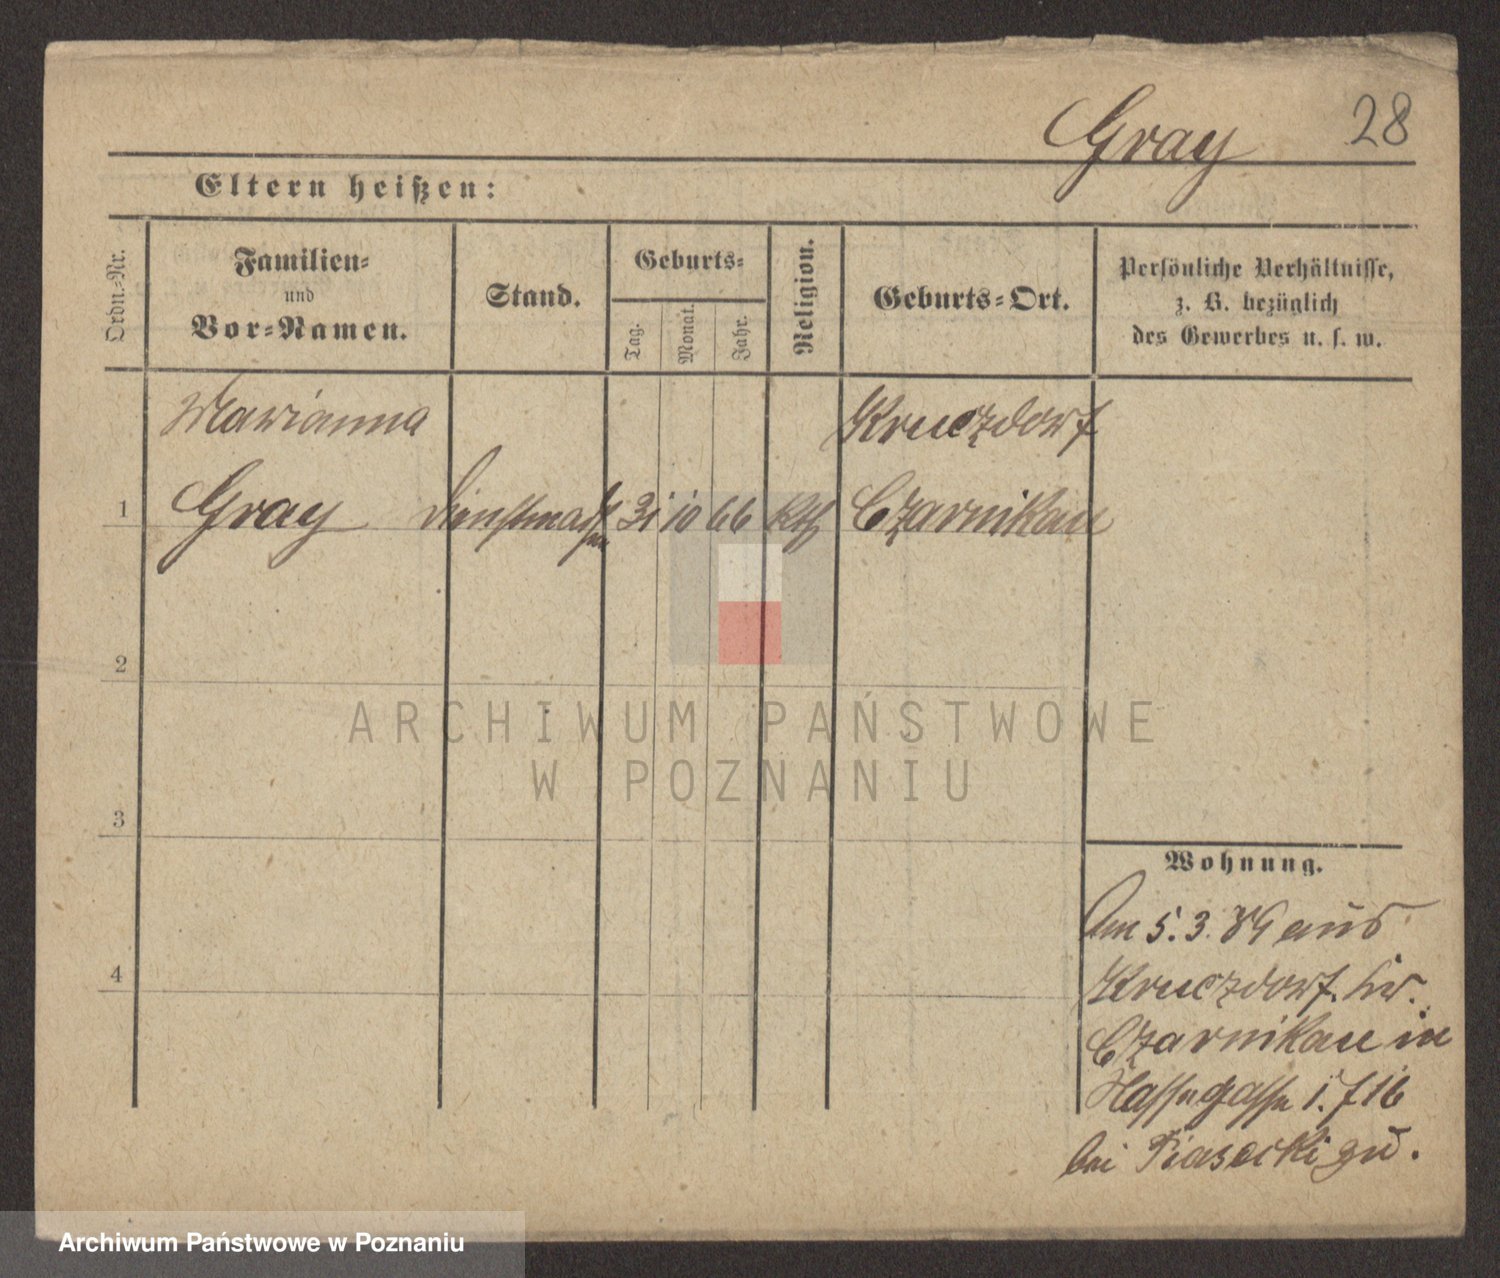 Gray
28
Eltern heißen:
Ordn.-Nr.
Familien-
und
Vor-Namen.
Stand.
Geburts-
Tag.
Monat.
Jahr.
Religion.
Geburts-Ort.
Persönliche Verhältnisse,
z. B. bezüglich
des Gewerbes u. s. w.
Marianna
Kruczdorf
1 Gray 31 10 66 Kth Czarnikau
2
3
4
ARCHIWUM PAŃSTWOWE
W POZNANIU
Wohnung.
Am 5. 3. 89 aus
Kruczdorf
Czarnikau in
bei Piasecki zu.
Archiwum Państwowe w Poznaniu